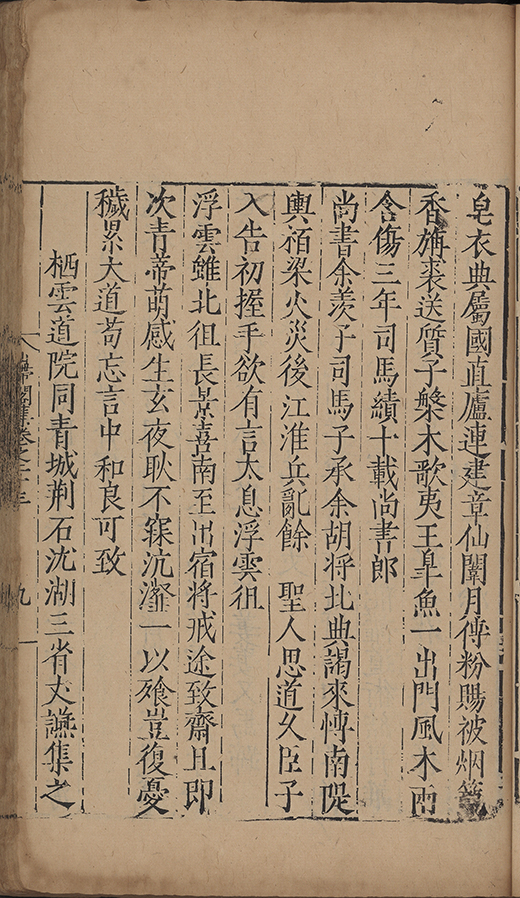 皂衣典屬國直廬連建章仙闈月傅粉賜被烟篝
香旃裘送質子槃木歌夷王臯魚一出門風木两
含傷三年司馬績十載尚書郎
尚書余羨子司馬子承余胡將北典謁來愽南陧
輿䄎梁火災後江淮兵亂餘 聖人思道乆臣子
入告初握手欲有言太息浮雲徂
浮雲雖北徂長景喜南至出宿將戒途致齋且即
次青帝萌感生玄夜耿不寐沆瀣一以飱豈復憂
穢累大道苟忘言中和良可致
栖雲道院同青城荆石沈湖三省丈讌集之
卷之二十
九